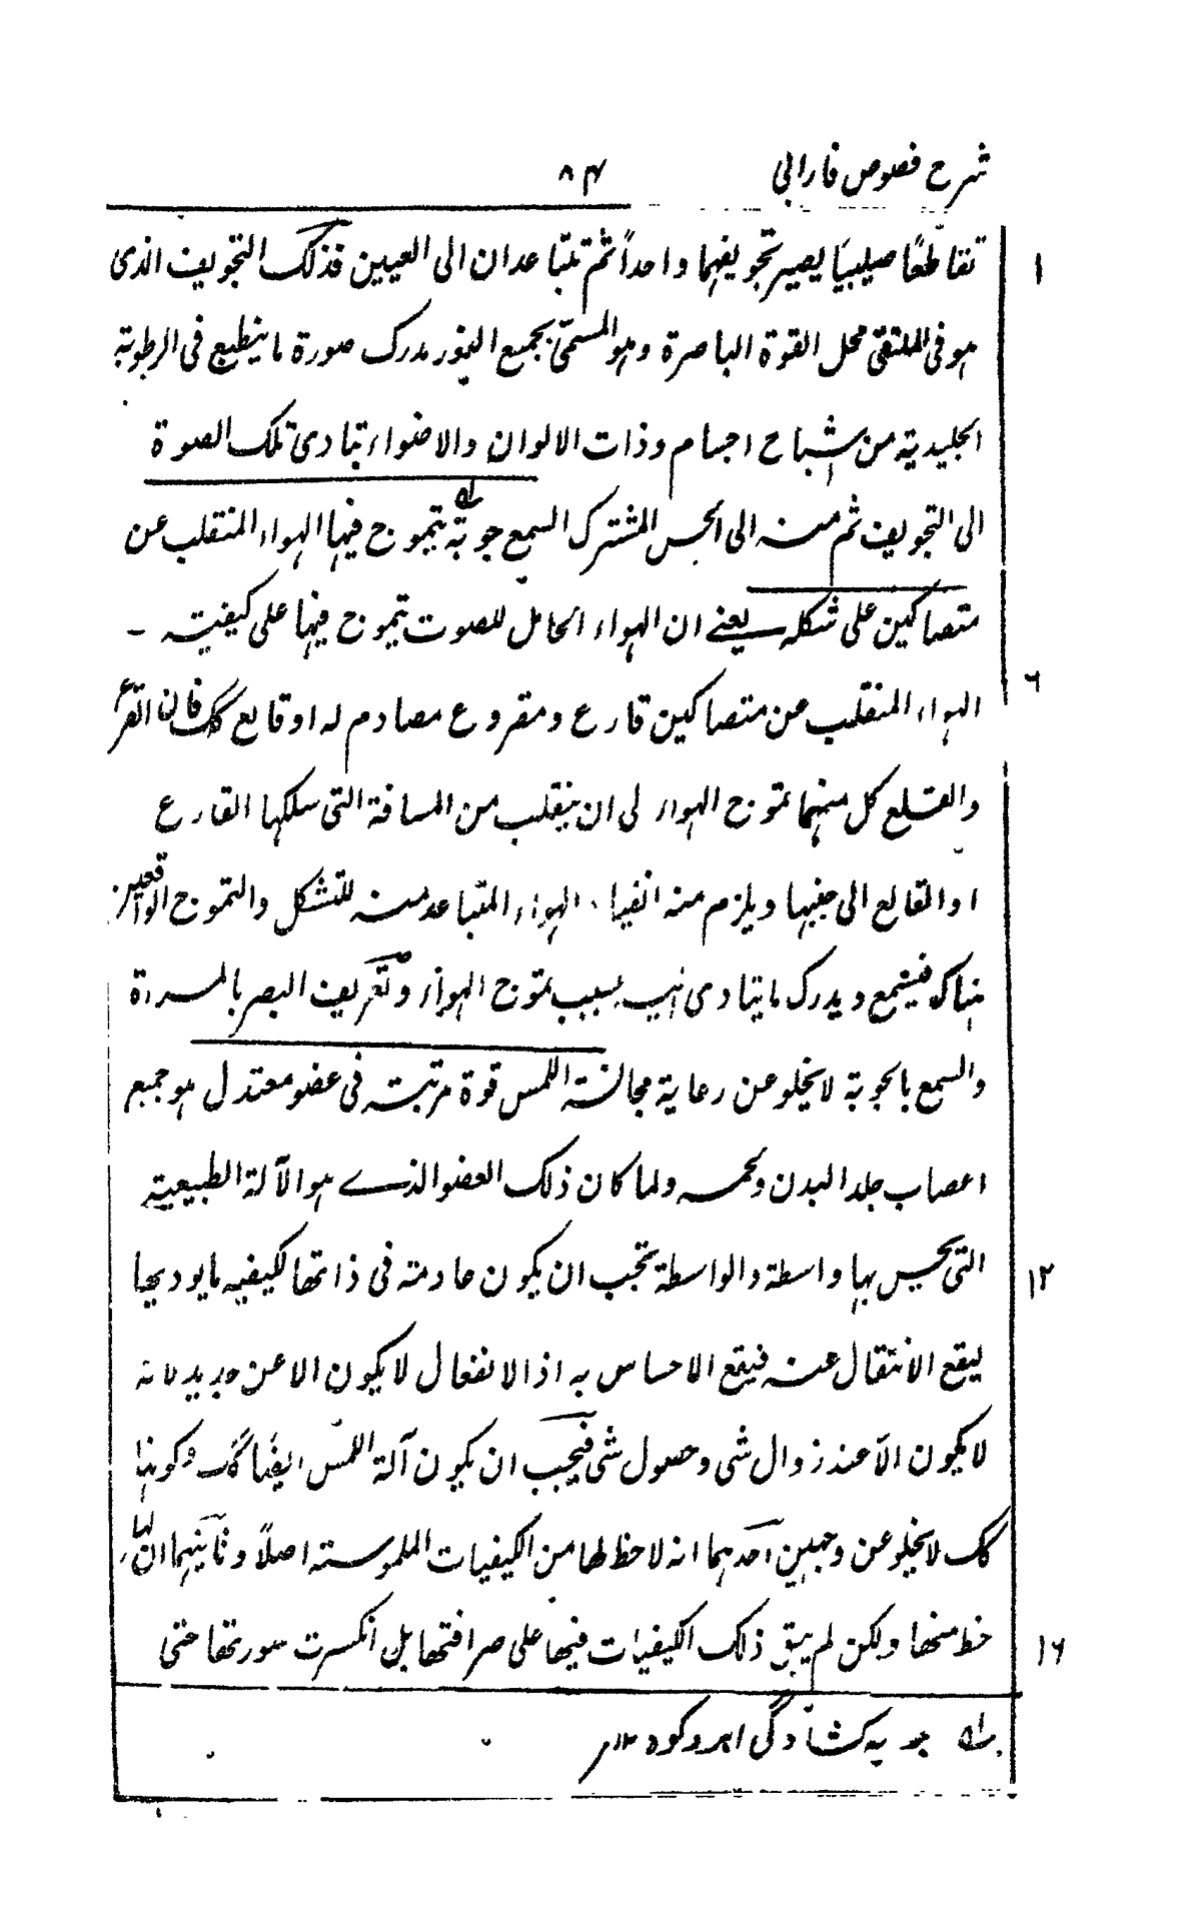 شرح فصوص فارابی
۸۴
۱
تقاطعًا صلیبیًا یصیر تجویفهما واحدًا ثم تتباعدان الی العینین فذلک التجویف الذی
هو فی الملتقی محل القوة الباصرة وهو المسمّی بجمیع النور مدرک صورة ما ینطبع فی الرطوبة
الجلیدیة من شباح اجسام وذات الالوان والاضواء بتادی تلک الصوة
الی التجویف ثم منه الی الحس المشترک السمع جوبة یتموج فیها الهواء المنقلب عن
متصاکین علی شکله یعنے ان الهواء الحامل للصوت یتموج فیها علی کیفیته -
۶
الهواء المنقلب عن متصاکین قارع ومقروع مصادم له او قالع کک فان القرع
والقلع کل منهما تموج الهواء لی ان ینقلب من المسافة التی سلکها القارع
او القالع الی جنبها ویلزم منه انقیاد الهواء المتباعد منه للتشکل والتموج الواقعین
هناک فیسمع ویدرک ما یتادی الیه بسبب تموج الهواء وتعریف البصر بالمسرءة
والسمع بالجوبة لا یخلو عن رعایة مجانسة اللمس قوة مرتبته فی عضو معتدل هو جمیع
اعصاب جلد البدن ولحمه ولما کان ذلک العضو الذے هو الآلة الطبیعیة
۱۲
التی یحس بها واسطة والواسطة تجب ان یکون عادمته فی ذاتها لکیفیه ما یودیها
لیقع الانتقال عنه فیقع الاحساس به اذ الانفعال لا یکون الا عن جدید لانه
لا یکون الّا عند زوال شی وحصول شی فیجب ان یکون آلة اللمس ایضًا کک وکونها
کک لا یخلو عن وجهین احدهما انه لا حظ لها من الکیفیات الملموسته اصلًا وثانیهما ان لها
۱۶
حظ منها ولکن لم یبق ذلک الکیفیات فیها علی صرافتها بل انکسرت سورتها حتی
له جوبه کشادگی ابر و کوه ۱۲